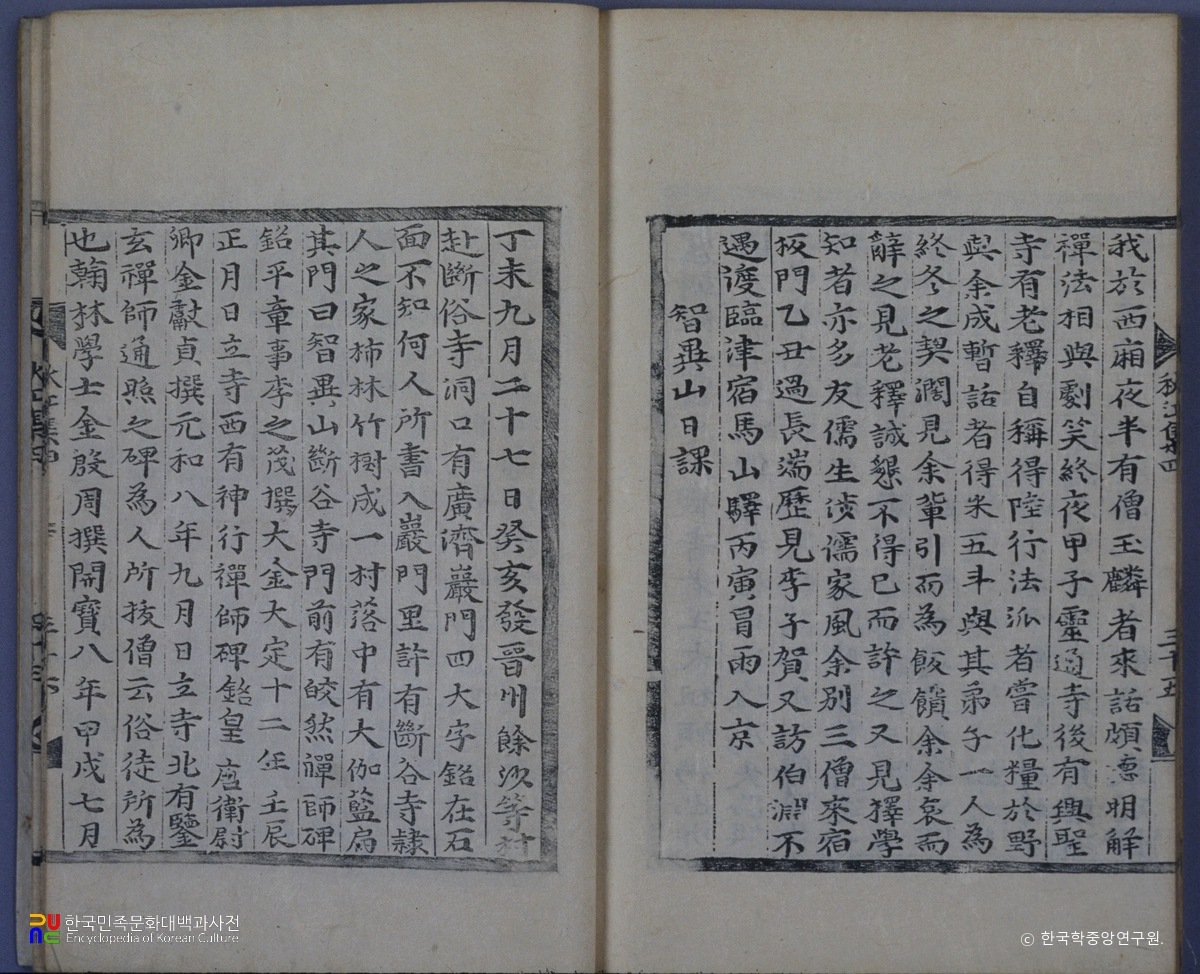 我於西廂夜半有僧玉麟者來話頗憑明解
禪法相與劇笑終夜甲子靈通寺後有興聖
寺有老釋自稱得陸行法派者嘗化糧於野
與余成暫話者得米五斗與其弟子一人為
終冬之契濶見余輩引而為飯饋余余哀而
辭之見老釋誠懇不得已而許之又見釋學
知者亦多友儒生淡儒家風余別三僧來宿
板門乙丑過長湍歷見李子賀又訪伯淵不
遇渡臨津宿馬山驛丙寅冒雨入京
智異山日課
三十五
丁未九月二十七日癸亥發晋州餘沙等村
赴斷俗寺洞口有廣濟嵓門四大字銘在石
面不知何人所書入嵓門里許有斷谷寺隸
人之家柿林竹樹成一村落中有大伽藍扁
其門曰智異山斷谷寺門前有皎然禪師碑
銘平章事李之茂撰大金大定十二年壬辰
正月日立寺西有神行禪師碑銘皇唐衛尉
卿金獻貞撰元和八年九月日立寺北有鑒
玄禪師通照之碑為人所拔僧云俗徒所為
也翰林學士金殷周撰開寶八年甲戌七月
한국민족문화대백과사전
Encyclopedia of Korean Culture
© 한국학중앙연구원.